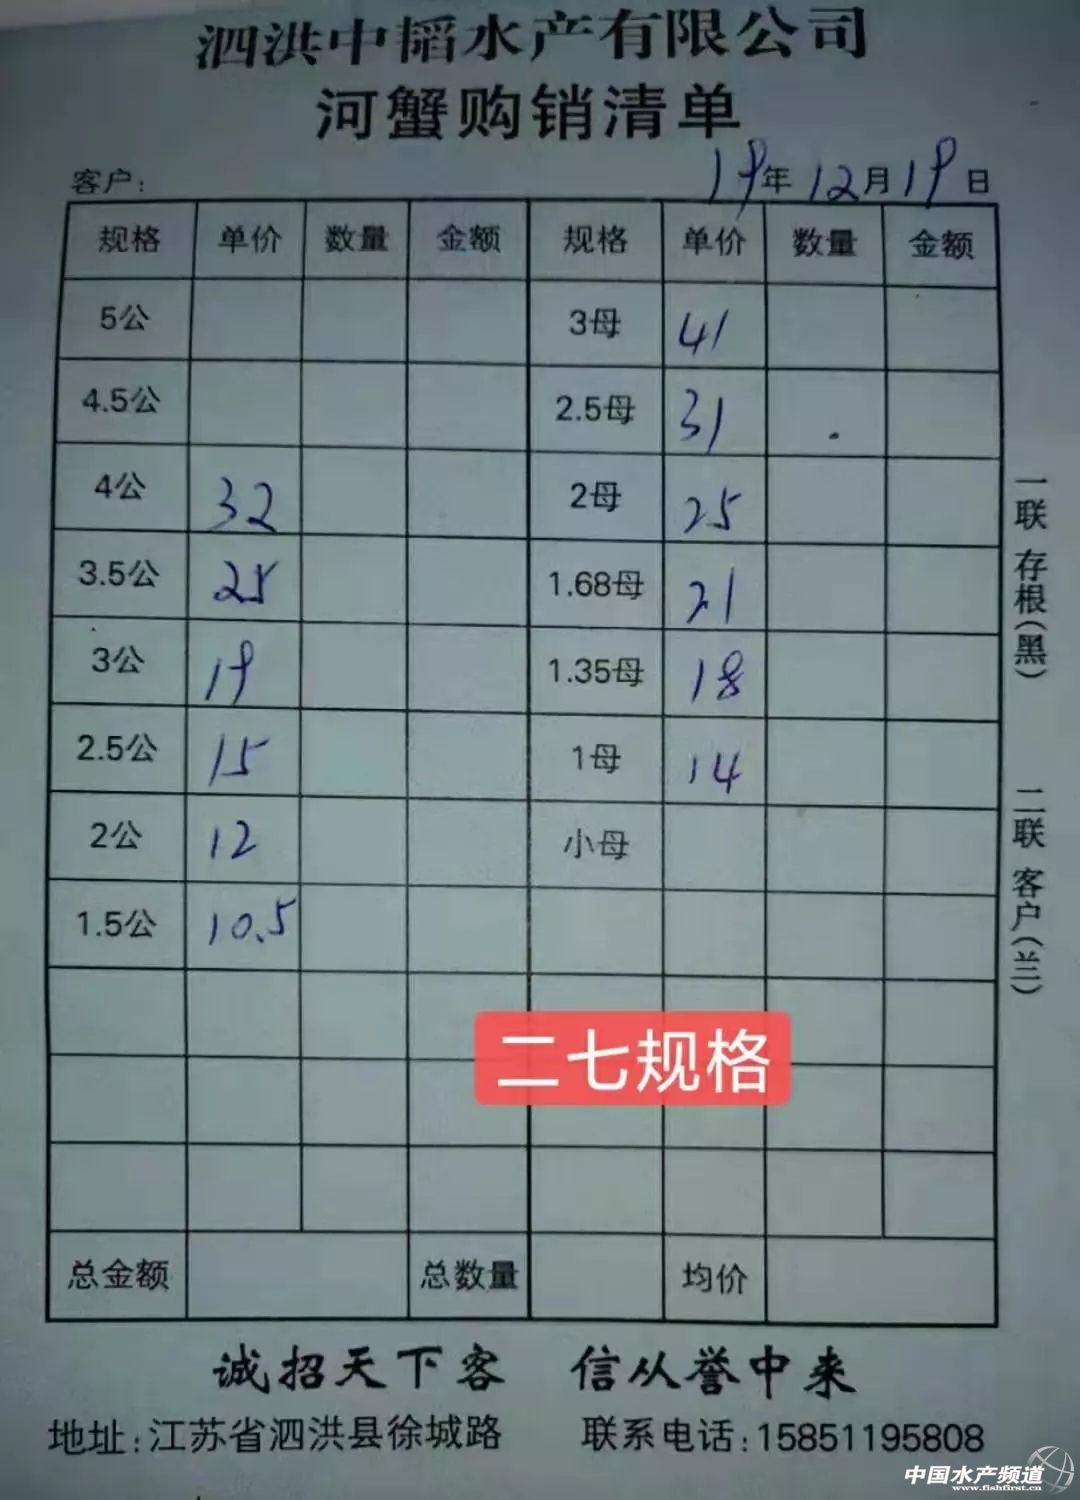 泗洪中韬水产有限公司
河蟹购销清单
客户: 19年12月19日
规格 单价 数量 金额 规格 单价 数量 金额
5公 3母 41
4.5公 2.5母 31
4公 32 2母 25
3.5公 25 1.68母 21
3公 19 1.35母 18
2.5公 15 1母 14
2公 12 小母
1.5公 10.5
二七规格
总金额 总数量 均价
一联 存根(黑) 二联 客户(兰)
诚招天下客 信从誉中来
地址:江苏省泗洪县徐城路 联系电话:15851195808
中国水产频道
www.fishfirst.cn